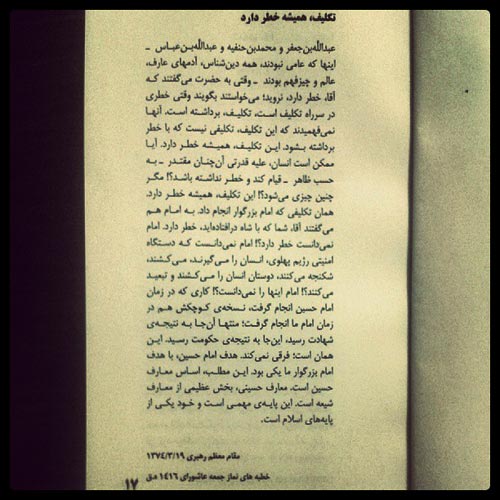 تکلیف، همیشه خطر دارد
عبدالله‌بن‌جعفر و محمدبن‌حنفیه و عبدالله‌بن‌عباس ـ
اینها که عامی نبودند، همه دین‌شناس، آدمهای عارف،
عالم و چیزفهم بودند ـ وقتی به حضرت می‌گفتند که
آقا، خطر دارد، نروید؛ می‌خواستند بگویند وقتی خطری
در سرراه تکلیف است، تکلیف، برداشته است. آنها
نمی‌فهمیدند که این تکلیف، تکلیفی نیست که با خطر
برداشته بشود. این تکلیف، همیشه خطر دارد. آیا
ممکن است انسان، علیه قدرتی آن‌چنان مقتدر ـ به
حسب ظاهر ـ قیام کند و خطر نداشته باشد؟! مگر
چنین چیزی می‌شود؟! این تکلیف، همیشه خطر دارد.
همان تکلیفی که امام بزرگوار انجام داد. به امام هم
می‌گفتند آقا، شما که با شاه درافتاده‌اید، خطر دارد. امام
نمی‌دانست خطر دارد؟! امام نمی‌دانست که دستگاه
امنیتی رژیم پهلوی، انسان را می‌گیرند، می‌کشند،
شکنجه می‌کنند، دوستان انسان را می‌کشند و تبعید
می‌کنند؟! امام اینها را نمی‌دانست؟! کاری که در زمان
امام حسین انجام گرفت، نسخه‌ی کوچکش هم در
زمان امام ما انجام گرفت؛ منتها آن‌جا به نتیجه‌ی
شهادت رسید، این‌جا به نتیجه‌ی حکومت رسید. این
همان است؛ فرقی نمی‌کند. هدف امام حسین، با هدف
امام بزرگوار ما یکی بود. این مطلب، اساس معارف
حسین است. معارف حسینی، بخش عظیمی از معارف
شیعه است. این پایه‌ی مهمی است و خود یکی از
پایه‌های اسلام است.
مقام معظم رهبری ۱۳۷۴/۳/۱۹
خطبه های نماز جمعه عاشورای ۱۴۱۶ ه.ق
۱۷